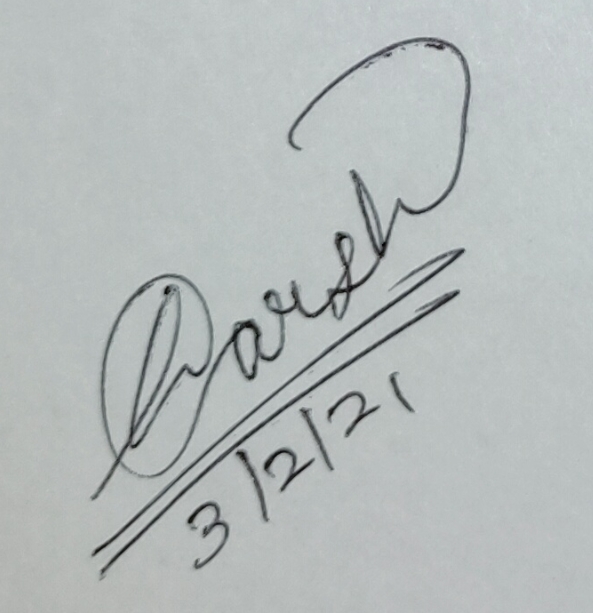 Harsh
3/2/21